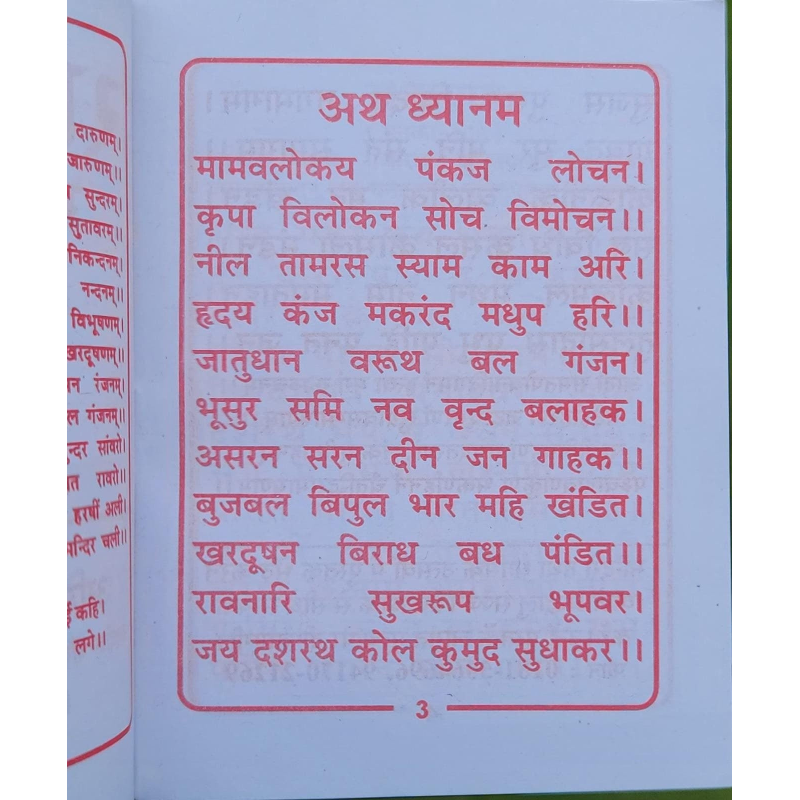 दारुणम्।
सुन्दरम्।
सुतावरम्॥
निकन्दनम्।
नन्दनम्॥
विभूषणम्।
खरदूषणम्॥
रंजनम्।
गंजनम्॥
सांवरो।
रावरो॥
हरषीं अली।
चली॥
कहि।
लगे॥
अथ ध्यानम
मामवलोकय पंकज लोचन।
कृपा विलोकन सोच विमोचन॥
नील तामरस स्याम काम अरि।
हृदय कंज मकरंद मधुप हरि॥
जातुधान वरूथ बल गंजन।
भूसुर समि नव वृन्द बलाहक।
असरन सरन दीन जन गाहक॥
बुजबल बिपुल भार महि खंडित।
खरदूषन बिराध बध पंडित॥
रावनारि सुखरूप भूपवर।
जय दशरथ कोल कुमुद सुधाकर॥
3